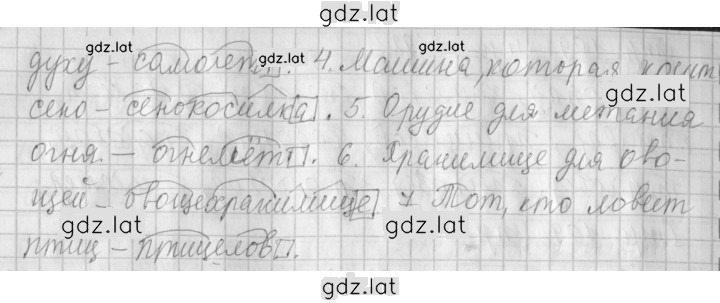 gdz.lat
духу – самолёт. 4. Машина, которая косит
gdz.lat
gdz.lat
gdz.lat
gdz.lat
сено – сенокосилка. 5. Орудие для метания
огня – огнемёт. 6. Хранилище для ово-
щей – овощехранилище 7 Тот, кто ловит
gdz.lat
gdz.lat
птиц – птицелов.
gdz.lat